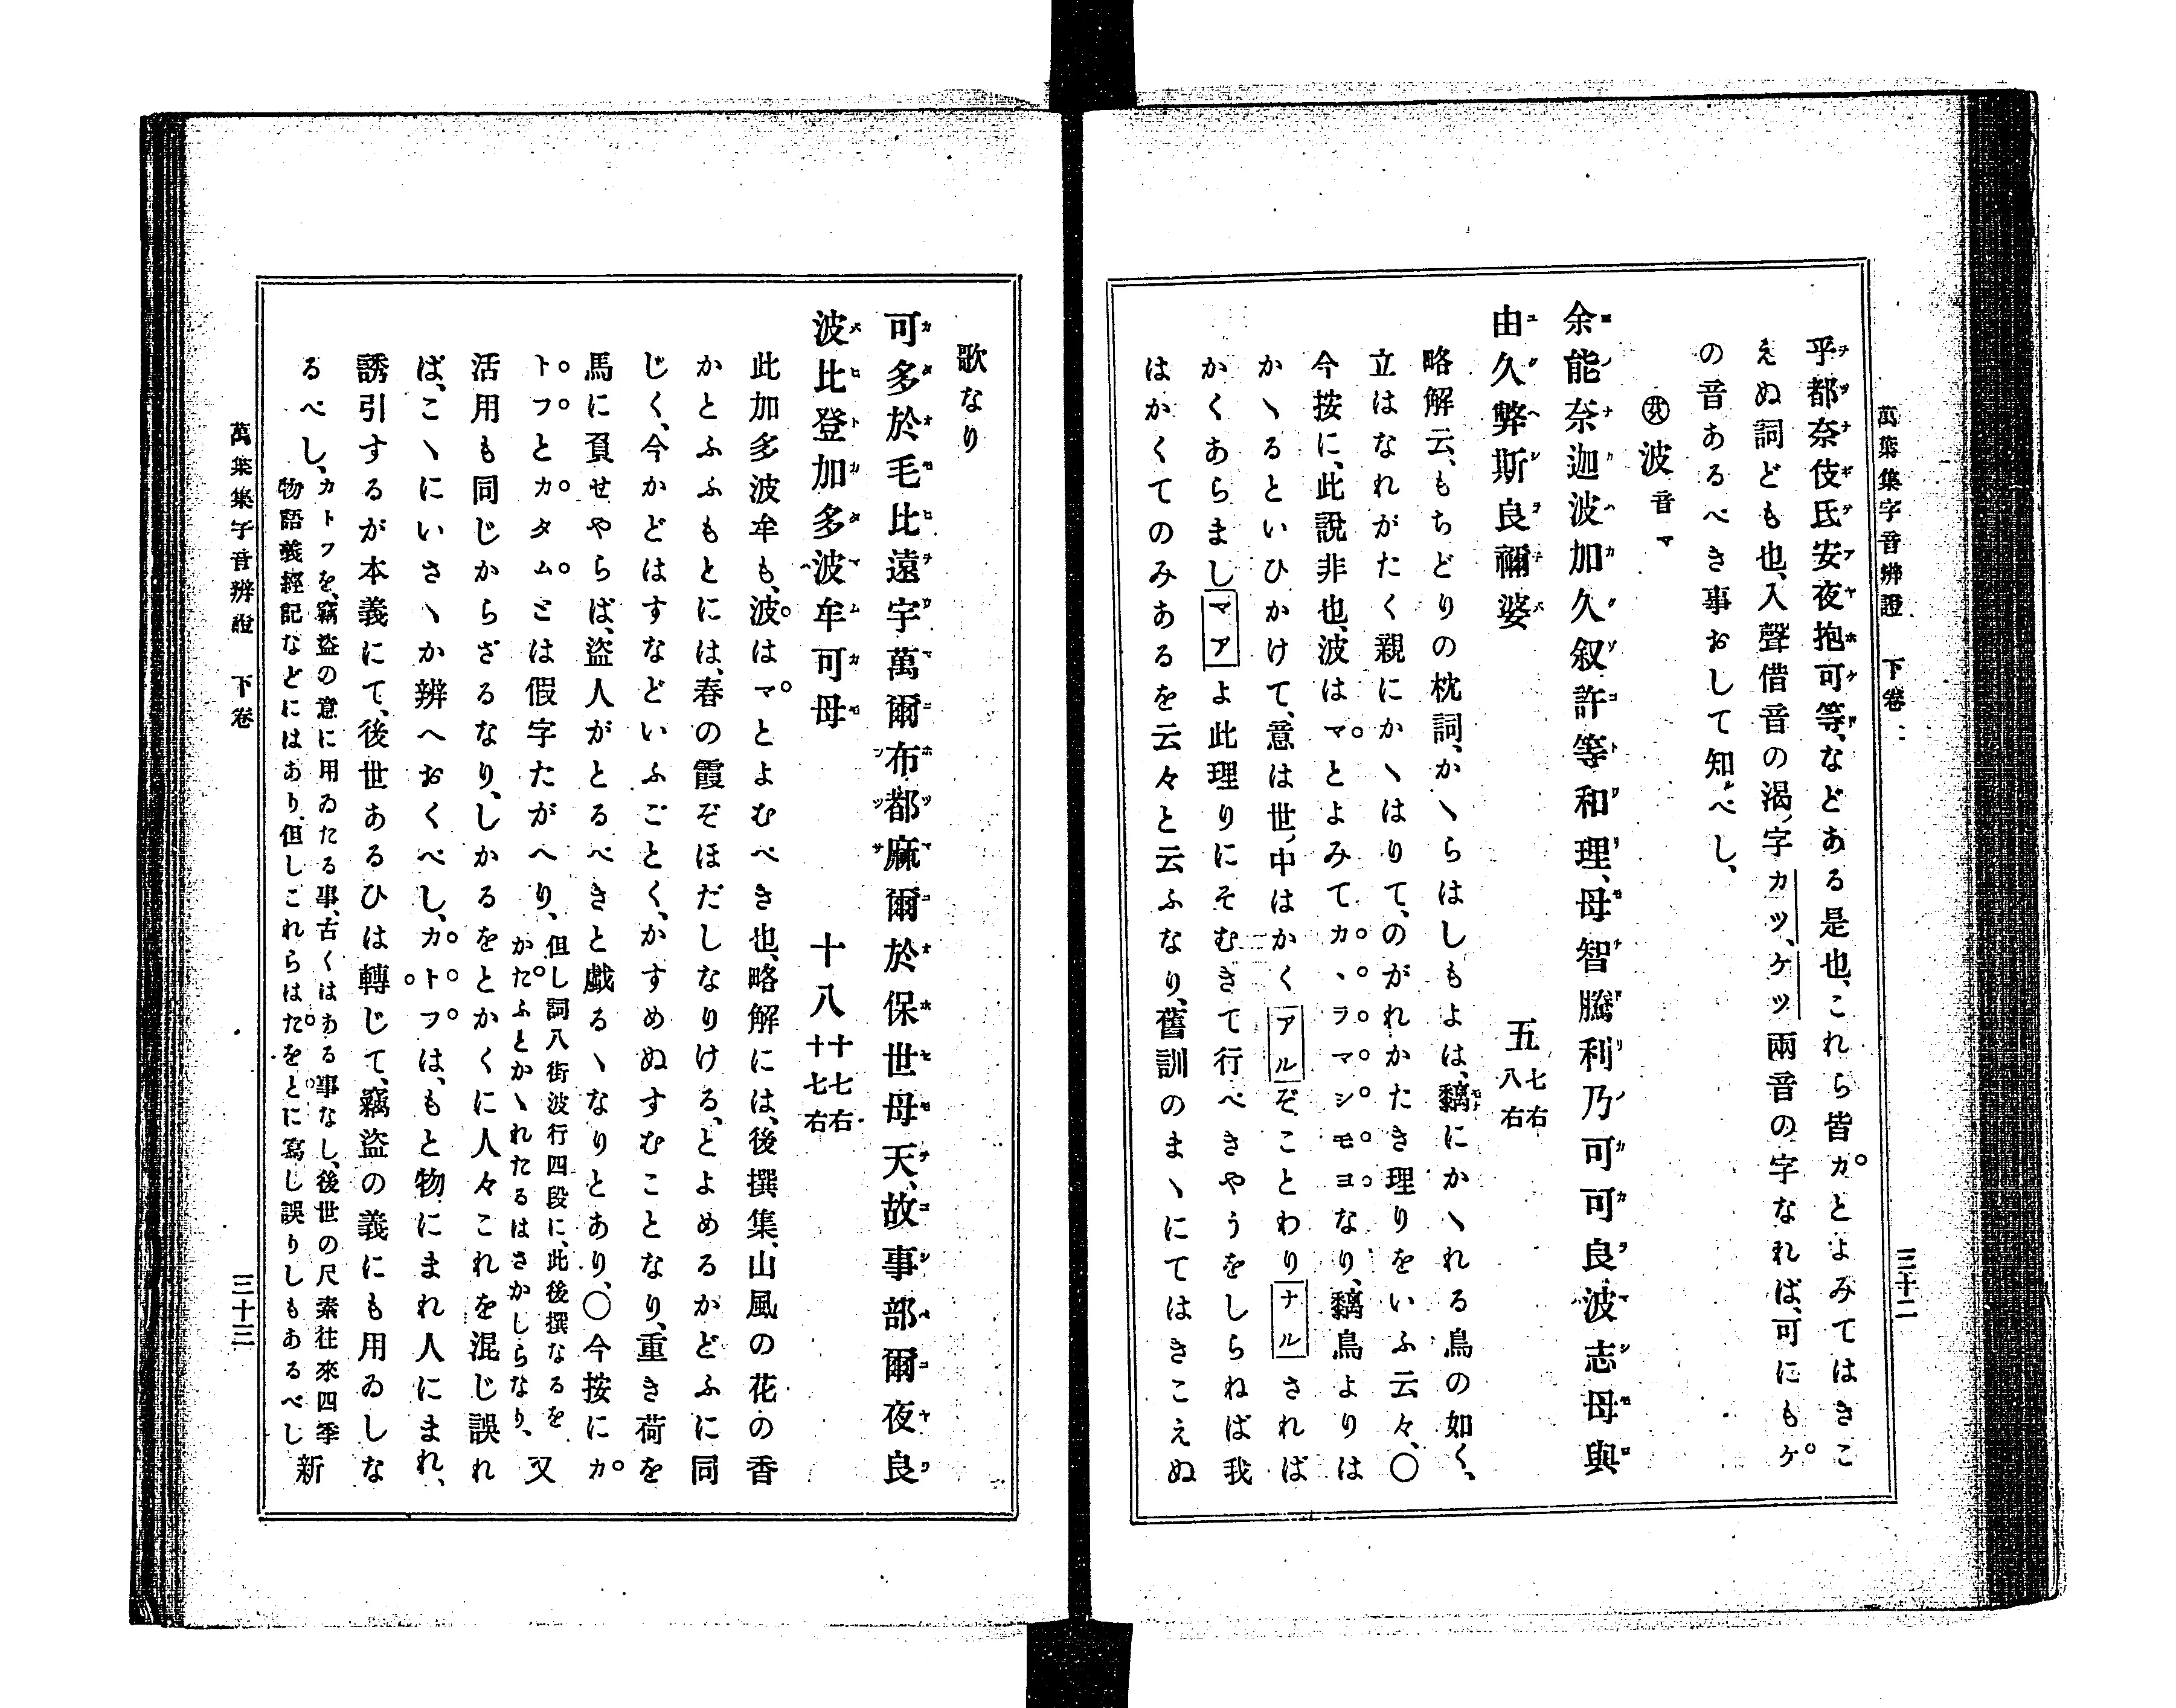 萬葉集字音辨證　下卷　三十二
乎都奈伎氐安夜抱可等、などある是也、これら皆カとよみてはきこ
えぬ詞ども也、入聲借音の渇字カツ、ケツ兩音の字なれば、可にもケ
の音あるべき事おして知べし、
波音マ
余能奈迦波加久叙許等和理、母智騰利乃可可良波志母與
由久弊斯良禰婆　五七右八右
略解云、もちどりの枕詞、かヽらはしもよは、黐にかヽれる鳥の如く、
立はなれがたく親にかヽはりて、のがれかたき理りをいふ云々、〇
今按に、此説非也、波はマとよみて、カヽラマシモヨなり、黐鳥よりは
かヽるといひかけて、意は世中はかくアルぞことわりナルされば
かくあらましマアよ此理りにそむきて行べきやうをしらねば我
はかくてのみあるを云々と云ふなり、舊訓のまヽにてはきこえぬ
歌なり
可多於毛比遠宇萬爾布都麻爾於保世母天、故事部爾夜良
波比登加多波牟可母　十八十七右十七右
此加多波牟も、波はマとよむべき也、略解には、後撰集、山風の花の香
かとふふもとには、春の霞ぞほだしなりける、とよめるかどふに同
じく、今かどはすなどいふごとく、かすめぬすむことなり、重き荷を
馬に負せやらば、盜人がとるべきと戯るヽなりとあり、〇今按にカ
トフとカタムとは假字たがへり、但し詞八街波行四段に、此後撰なるを
かたふとかヽれたるはさかしらなり、又
活用も同じからざるなり、しかるをとかくに人々これを混じ誤れ
ば、こヽにいさヽか辨へおくべし、カトフは、もと物にまれ人にまれ、
誘引するが本義にて、後世あるひは轉じて、竊盜の義にも用ゐしな
るべし、カトフを、竊盜の意に用ゐたる事、古くはある事なし、後世の尺素往來四季
物語義經記などにはあり、但しこれらはたをとに寫し誤りしもあるべし新
萬葉集字音辨證　下卷　三十三